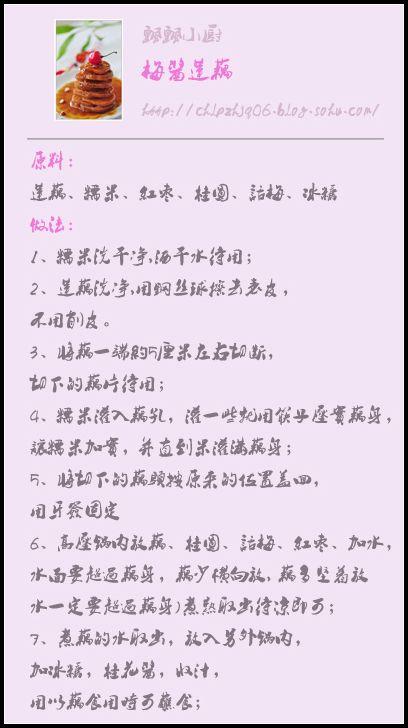 飘飘小厨
梅酱莲藕
http://chlpzhjq06.blog.sohu.com/
原料：
莲藕、糯米、红枣、桂圆、话梅、冰糖
做法：
1、糯米洗干净,沥干水待用；
2、莲藕洗净,用钢丝球擦去表皮，
不用削皮。
3、将藕一端约5厘米左右切断，
切下的藕片待用；
4、糯米灌入藕孔，灌一些就用筷子压实藕身，
让糯米加实，并直到米灌满藕身；
5、将切下的藕头按原来的位置盖回，
用牙签固定
6、高压锅内放藕、桂圆、话梅、红枣、加水，
水面要超过藕身，藕少横向放，藕多竖着放
水一定要超过藕身）煮熟取出待凉即可；
7、煮藕的水取出，放入另外锅内，
加冰糖，桂花酱，收汁，
用以藕食用时可蘸食；